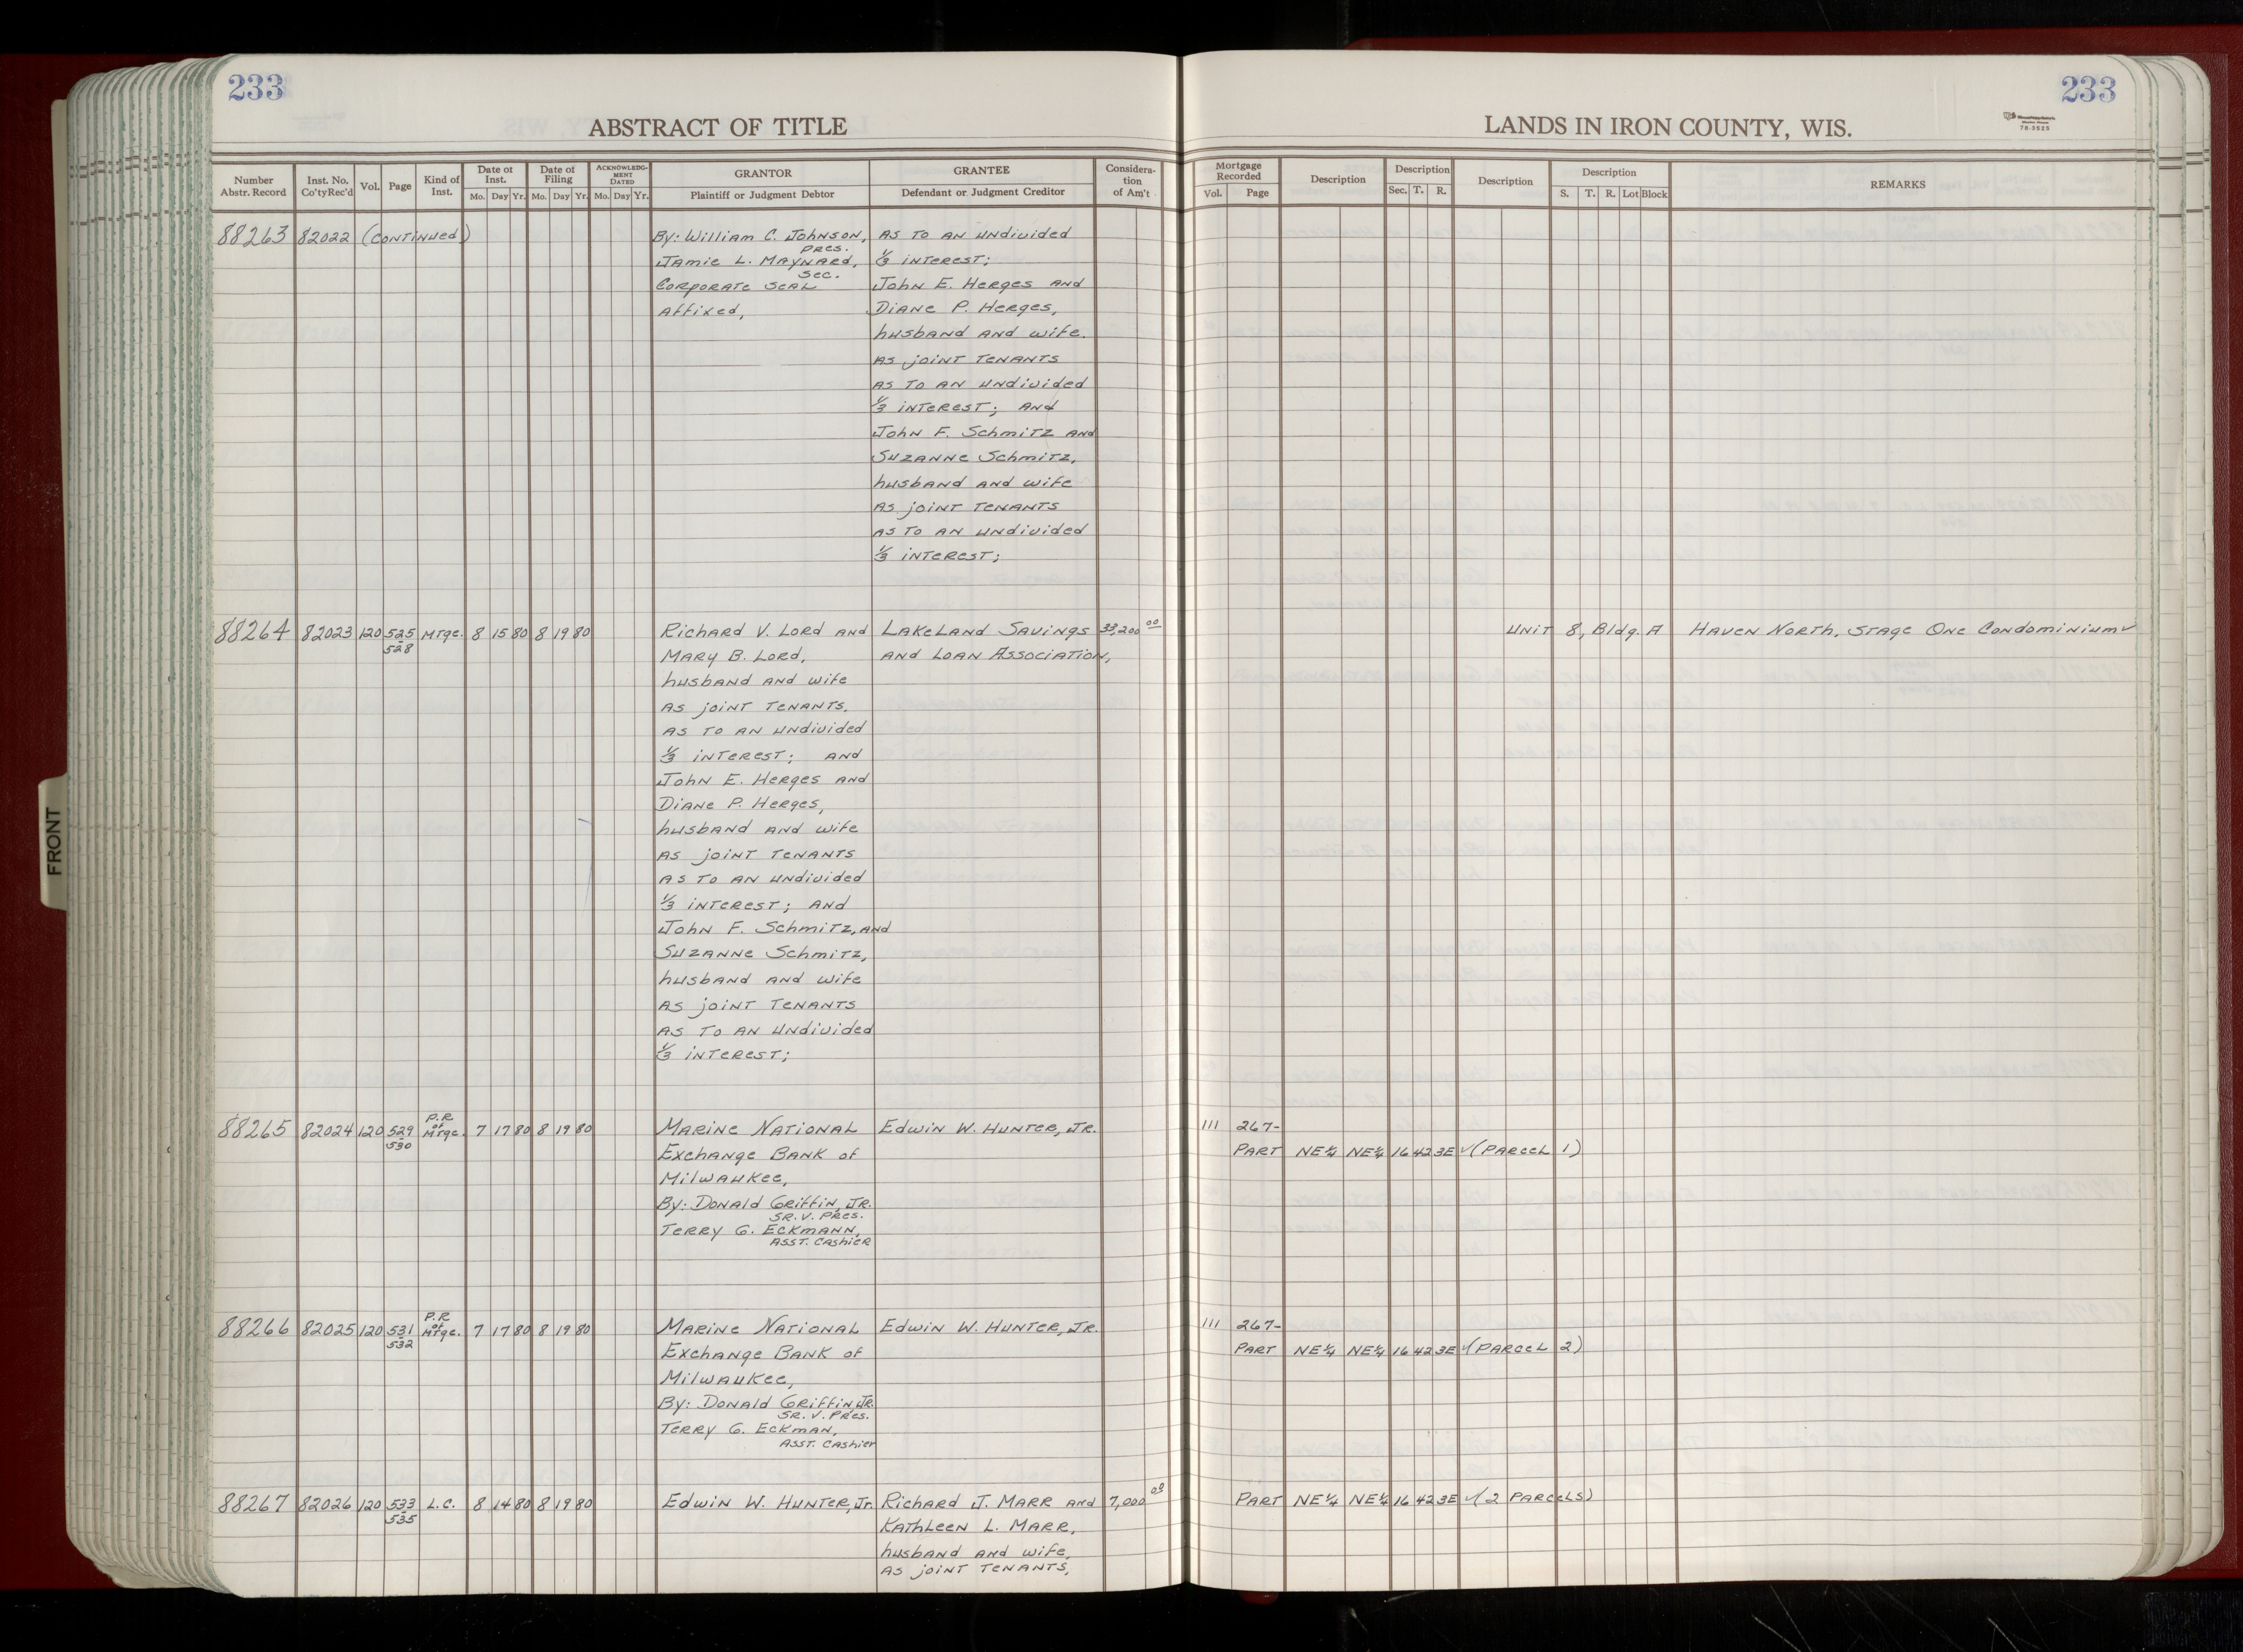 233
ABSTRACT OF TITLE
Number Abstr. Record
Inst. No. Co'ty Rec'd
Vol.
Page
Kind of Inst.
Date of Inst.
Mo. Day Yr.
Date of Filing
Mo. Day Yr.
ACKNOWLEDGMENT DATED
Mo. Day Yr.
GRANTOR
Plaintiff or Judgment Debtor
GRANTEE
Defendant or Judgment Creditor
Consideration of Am't
88263 82022 (continued) By: William C. Johnson, as to an undivided
pres.
Jamie L. Maynard, 1/3 interest;
sec.
Corporate seal John E. Herges and
affixed, Diane P. Herges,
husband and wife.
as joint tenants
as to an undivided
1/3 interest; and
John F. Schmitz and
Suzanne Schmitz,
husband and wife
as joint tenants
as to an undivided
1/3 interest;
88264 82023 120 525 Mtge. 8 15 80 8 19 80 Richard V. Lord and Lakeland Savings 33,200 00
528
Mary B. Lord, and Loan Association,
husband and wife
as joint tenants.
as to an undivided
1/3 interest; and
John E. Herges and
Diane P. Herges,
husband and wife
as joint tenants
as to an undivided
1/3 interest; and
John F. Schmitz, and
Suzanne Schmitz,
husband and wife
as joint tenants
as to an undivided
1/3 interest;
P.R
of
88265 82024 120 529 Mtge. 7 17 80 8 19 80 Marine National Edwin W. Hunter, Jr.
530
Exchange Bank of
Milwaukee,
By: Donald Griffin, Jr.
Sr. V. Pres.
Terry G. Eckmann,
Asst. Cashier
P.R
of
88266 82025 120 531 Mtge. 7 17 80 8 19 80 Marine National Edwin W. Hunter, Jr.
532
Exchange Bank of
Milwaukee,
By: Donald Griffin, Jr.
Sr. V. Pres.
Terry G. Eckman,
Asst. Cashier
88267 82026 120 533 L.C. 8 14 80 8 19 80 Edwin W. Hunter, Jr. Richard J. Marr and 7,000 00
535
Kathleen L. Marr,
husband and wife,
as joint tenants,
233
LANDS IN IRON COUNTY, WIS.
78-3525
Mortgage Recorded
Vol. Page
Description
Description
Sec. T. R.
Description
Description
S. T. R. Lot Block
REMARKS
Unit 8, Bldg. A Haven North, Stage One Condominium ✓
111 267-
Part NE¼ NE¼ 16 42 3E ✓ (Parcel 1)
111 267-
Part NE¼ NE¼ 16 42 3E ✓ (Parcel 2)
Part NE¼ NE¼ 16 42 3E ✓ (2 Parcels)
FRONT